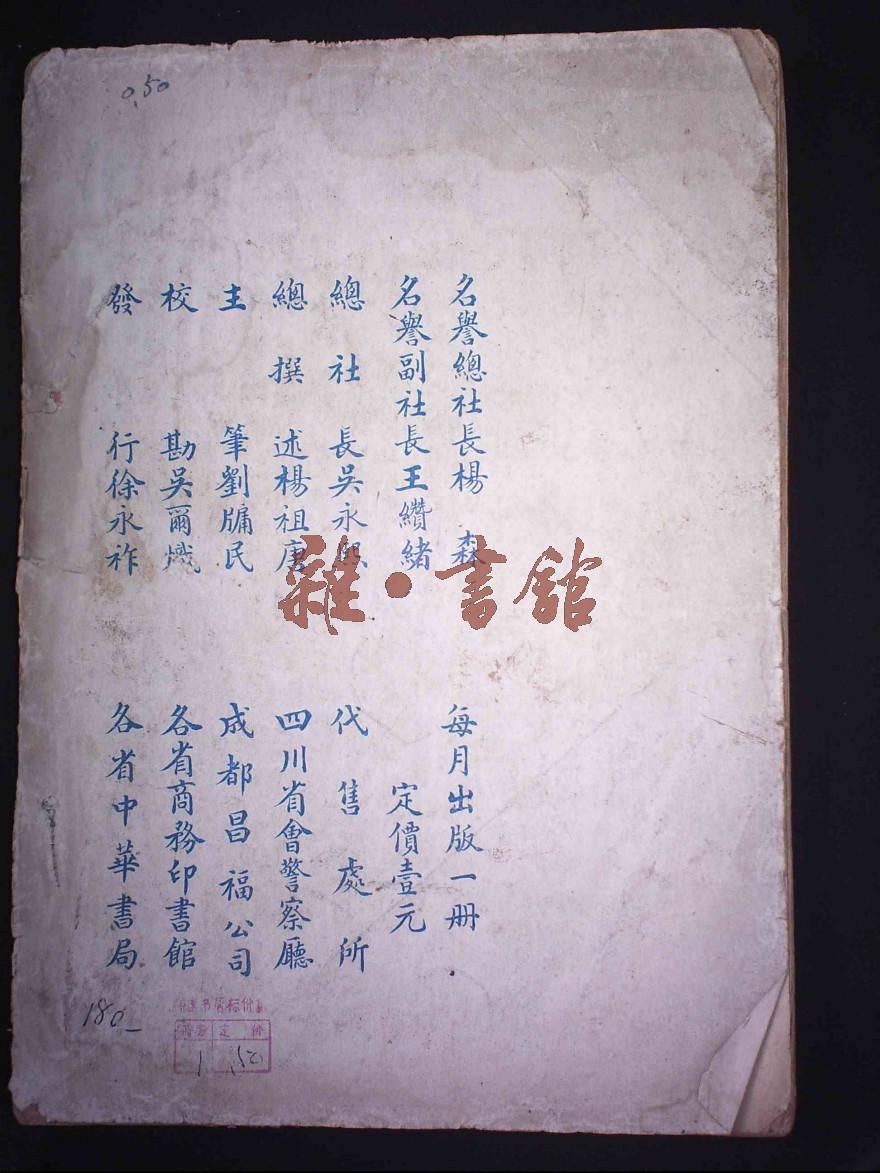 0.50
名譽總社長楊 森
名譽副社長王纘緒
總社長吳永熙
總撰述楊祖唐
主筆劉牖民
校勘吳爾熾
發行徐永祚
雜·書館
每月出版一册
定價壹元
代售處所
四川省會警察廳
成都昌福公司
各省商務印書館
各省中華書局
180-
定 价
1 .50